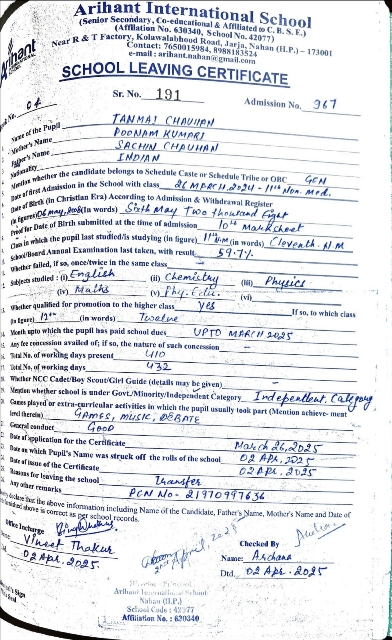 Arihant International School
(Senior Secondary, Co-educational & Affiliated to C. B. S. E.)
(Affiliation No. 630340, School No. 42077)
Near R & T Factory, Kolawalabhood Road, Jarja, Nahan (H.P.) – 173001
Contact: 7650015984, 8988183524
e-mail : arihant.nahan@gmail.com
Arihant
SCHOOL LEAVING CERTIFICATE
Sr. No. 191
Admission No. 967
No. 04
Name of the Pupil TANMAI CHAUHAN
Mother's Name POONAM KUMARI
Father's Name SACHIN CHAUHAN
Nationality INDIAN
Mention whether the candidate belongs to Schedule Caste or Schedule Tribe or OBC GEN
Date of first Admission in the School with class 26 MARCH, 2024 - 11th Non. Med.
Date of Birth (in Christian Era) According to Admission & Withdrawal Register
(in figures) 06 May, 2008 (in Words) Sixth May Two thousand Eight
Proof for Date of Birth submitted at the time of admission 10th Marksheet
Class in which the pupil last studied/is studying (in figure) 11th N.M (in words) Eleventh. N.M
School/Board Annual Examination last taken, with result 59.7%
Whether failed, if so, once/twice in the same class –
Subjects studied : (i) English (ii) Chemistry (iii) Physics
(iv) Maths (v) Phy. Edu. (vi)
Whether qualified for promotion to the higher class Yes If so, to which class
(in figure) 12th (in words) Twelve
Month upto which the pupil has paid school dues UPTO MARCH 2025
Any fee concession availed of; if so, the nature of such concession –
Total No. of working days present 410
Total No. of working days 432
Whether NCC Cadet/Boy Scout/Girl Guide (details may be given) –
Mention whether school is under Govt./Minority/Independent Category Independent. Category
Games played or extra-curricular activities in which the pupil usually took part (Mention achieve- ment
level therein) GAMES, MUSIC, DEBATE
General conduct GOOD
Date of application for the Certificate March 26, 2025
Date on which Pupil's Name was struck off the rolls of the school 02 APR, 2025
Date of issue of the Certificate 02 APR. 2025
Reasons for leaving the school Transfer
Any other remarks PCN No- 21970997636
declare that the above information including Name of the Candidate, Father's Name, Mother's Name and Date of
furnished above is correct as per school records.
Office Incharge
Vineet Thakur
02 Apr. 2025
2nd April, 2025
Checked By
Name: Archana
Dtd. 02 Apr. 2025
Principal
Arihant International School
Nahan (H.P.)
School Code : 42077
Affiliation No. : 630340